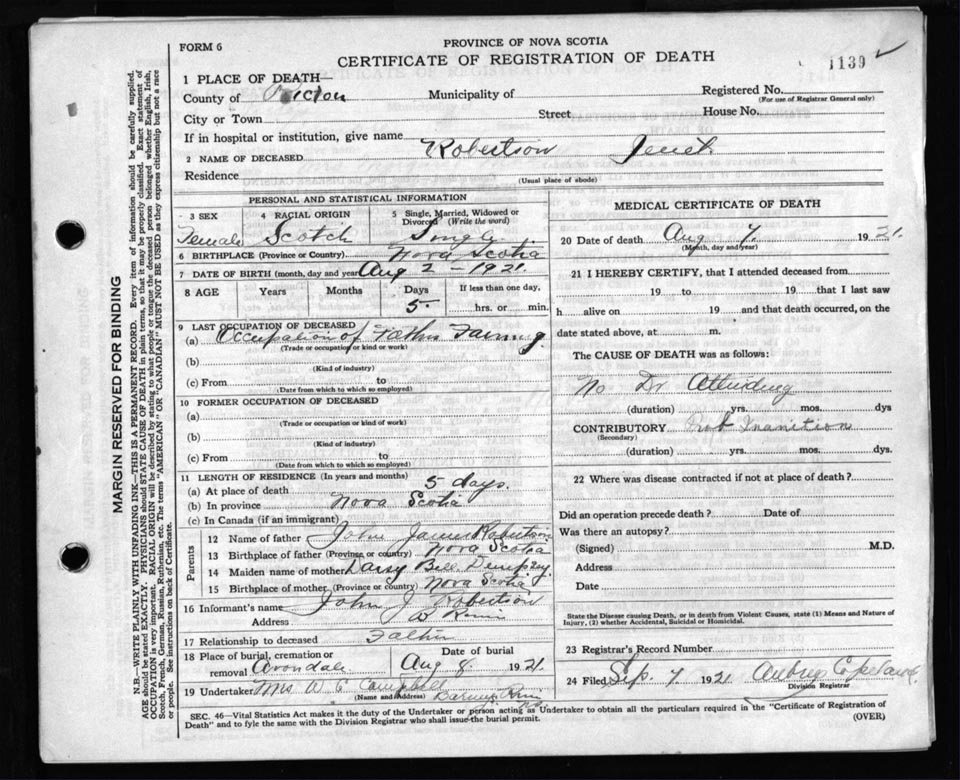 FORM 6
PROVINCE OF NOVA SCOTIA
CERTIFICATE OF REGISTRATION OF DEATH
1139
1 PLACE OF DEATH
County of Pictou Municipality of Registered No.
(For use of Registrar General only)
City or Town Street House No.
If in hospital or institution, give name
2 NAME OF DECEASED Robertson
Residence
(Usual place of abode)
PERSONAL AND STATISTICAL INFORMATION
3 SEX 4 RACIAL ORIGIN 5 Single, Married, Widowed or Divorced (Write the word)
Female Scotch Single
6 BIRTHPLACE (Province or Country) Nova Scotia
7 DATE OF BIRTH (month, day and year) Aug 2 - 1921
8 AGE Years Months Days If less than one day,
5 hrs. or min.
9 LAST OCCUPATION OF DECEASED
(a) Occupation of Father Farming
(Trade or occupation or kind or work)
(b)
(Kind of industry)
(c) From to
(Date from which to which so employed)
10 FORMER OCCUPATION OF DECEASED
(a)
(Trade or occupation or kind of work)
(b)
(Kind of industry)
(c) From to
(Date from which to which so employed)
11 LENGTH OF RESIDENCE (In years and months)
(a) At place of death 5 days.
(b) In province Nova Scotia
(c) In Canada (if an immigrant)
Parents
12 Name of father John James Robertson
13 Birthplace of father (Province or country) Nova Scotia
14 Maiden name of mother Bell Dempsey
15 Birthplace of mother (Province or country) Nova Scotia
16 Informant's name John J Robertson
Address
17 Relationship to deceased Father
18 Place of burial, cremation or removal Avondale Date of burial Aug 8 1921.
19 Undertaker Mrs W C Campbell
(Name and Address)
MEDICAL CERTIFICATE OF DEATH
20 Date of death Aug 7 1921.
(Month, day and year)
21 I HEREBY CERTIFY, that I attended deceased from
19 to 19 that I last saw
h alive on 19 and that death occurred, on the
date stated above, at m.
The CAUSE OF DEATH was as follows:
No Dr Attending
(duration) yrs. mos. dys
CONTRIBUTORY Prob Inanition
(Secondary)
(duration) yrs. mos. dys.
22 Where was disease contracted if not at place of death?
Did an operation precede death? Date of
Was there an autopsy?
(Signed) M.D.
Address
Date
State the Disease causing Death, or in death from Violent Causes, state (1) Means and Nature of Injury, (2) whether Accidental, Suicidal or Homicidal.
23 Registrar's Record Number
24 Filed Sep. 7 1921 Aubrey
Division Registrar
SEC. 46—Vital Statistics Act makes it the duty of the Undertaker or person acting as Undertaker to obtain all the particulars required in the "Certificate of Registration of
Death" and to fyle the same with the Division Registrar who shall issue the burial permit.
(OVER)
MARGIN RESERVED FOR BINDING
N.B.—WRITE PLAINLY WITH UNFADING INK—THIS IS A PERMANENT RECORD. Every item of information should be carefully supplied.
AGE should be stated EXACTLY. PHYSICIANS should STATE CAUSE OF DEATH in plain terms, so that it may be properly classified. Exact statement of
OCCUPATION is very important. RACIAL ORIGIN will be described by stating to what people or tongue the deceased person belonged whether English, Irish,
Scotch, French, German, Russian, Ruthenian, etc. The terms "AMERICAN" OR "CANADIAN" MUST NOT BE USED as they express citizenship but not a race
or people. See instructions on back of Certificate.